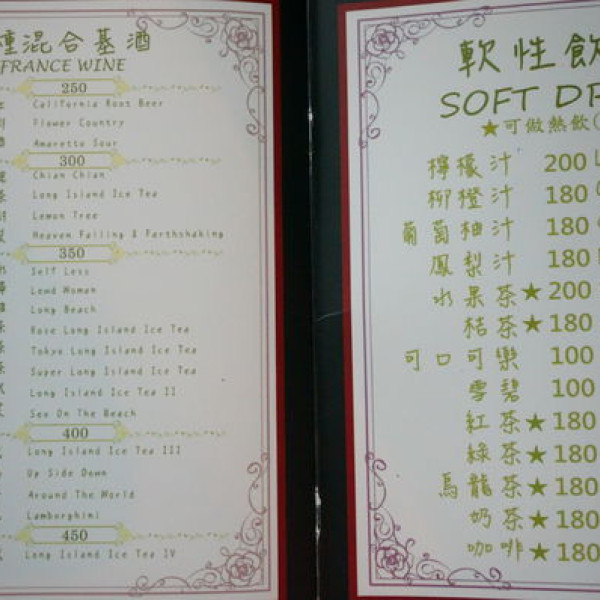 種混合基酒
FRANCE WINE
250
California Root Beer
Flower Country
Amaretto Sour
300
Chian Chian
Long Island Ice Tea
Lemon Tree
Heaven Failing & Farthshaking
350
Self Less
Lewd Woman
Long Beach
Rose Long Island Ice Tea
Tokyo Long Island Ice Tea
Super Long Island Ice Tea
Long Island Ice Tea II
Sex On The Beach
400
Long Island Ice Tea III
Up Side Down
Around The World
Lamborghini
450
Long Island Ice Tea IV
軟性飲
SOFT DR
★可做熱飲(
檸檬汁 200
柳橙汁 180
葡萄柚汁 180
鳳梨汁 180
水果茶★200
桔茶★180
可口可樂 100
雪碧 100
紅茶★180
綠茶★180
烏龍茶★180
奶茶★180
咖啡★180